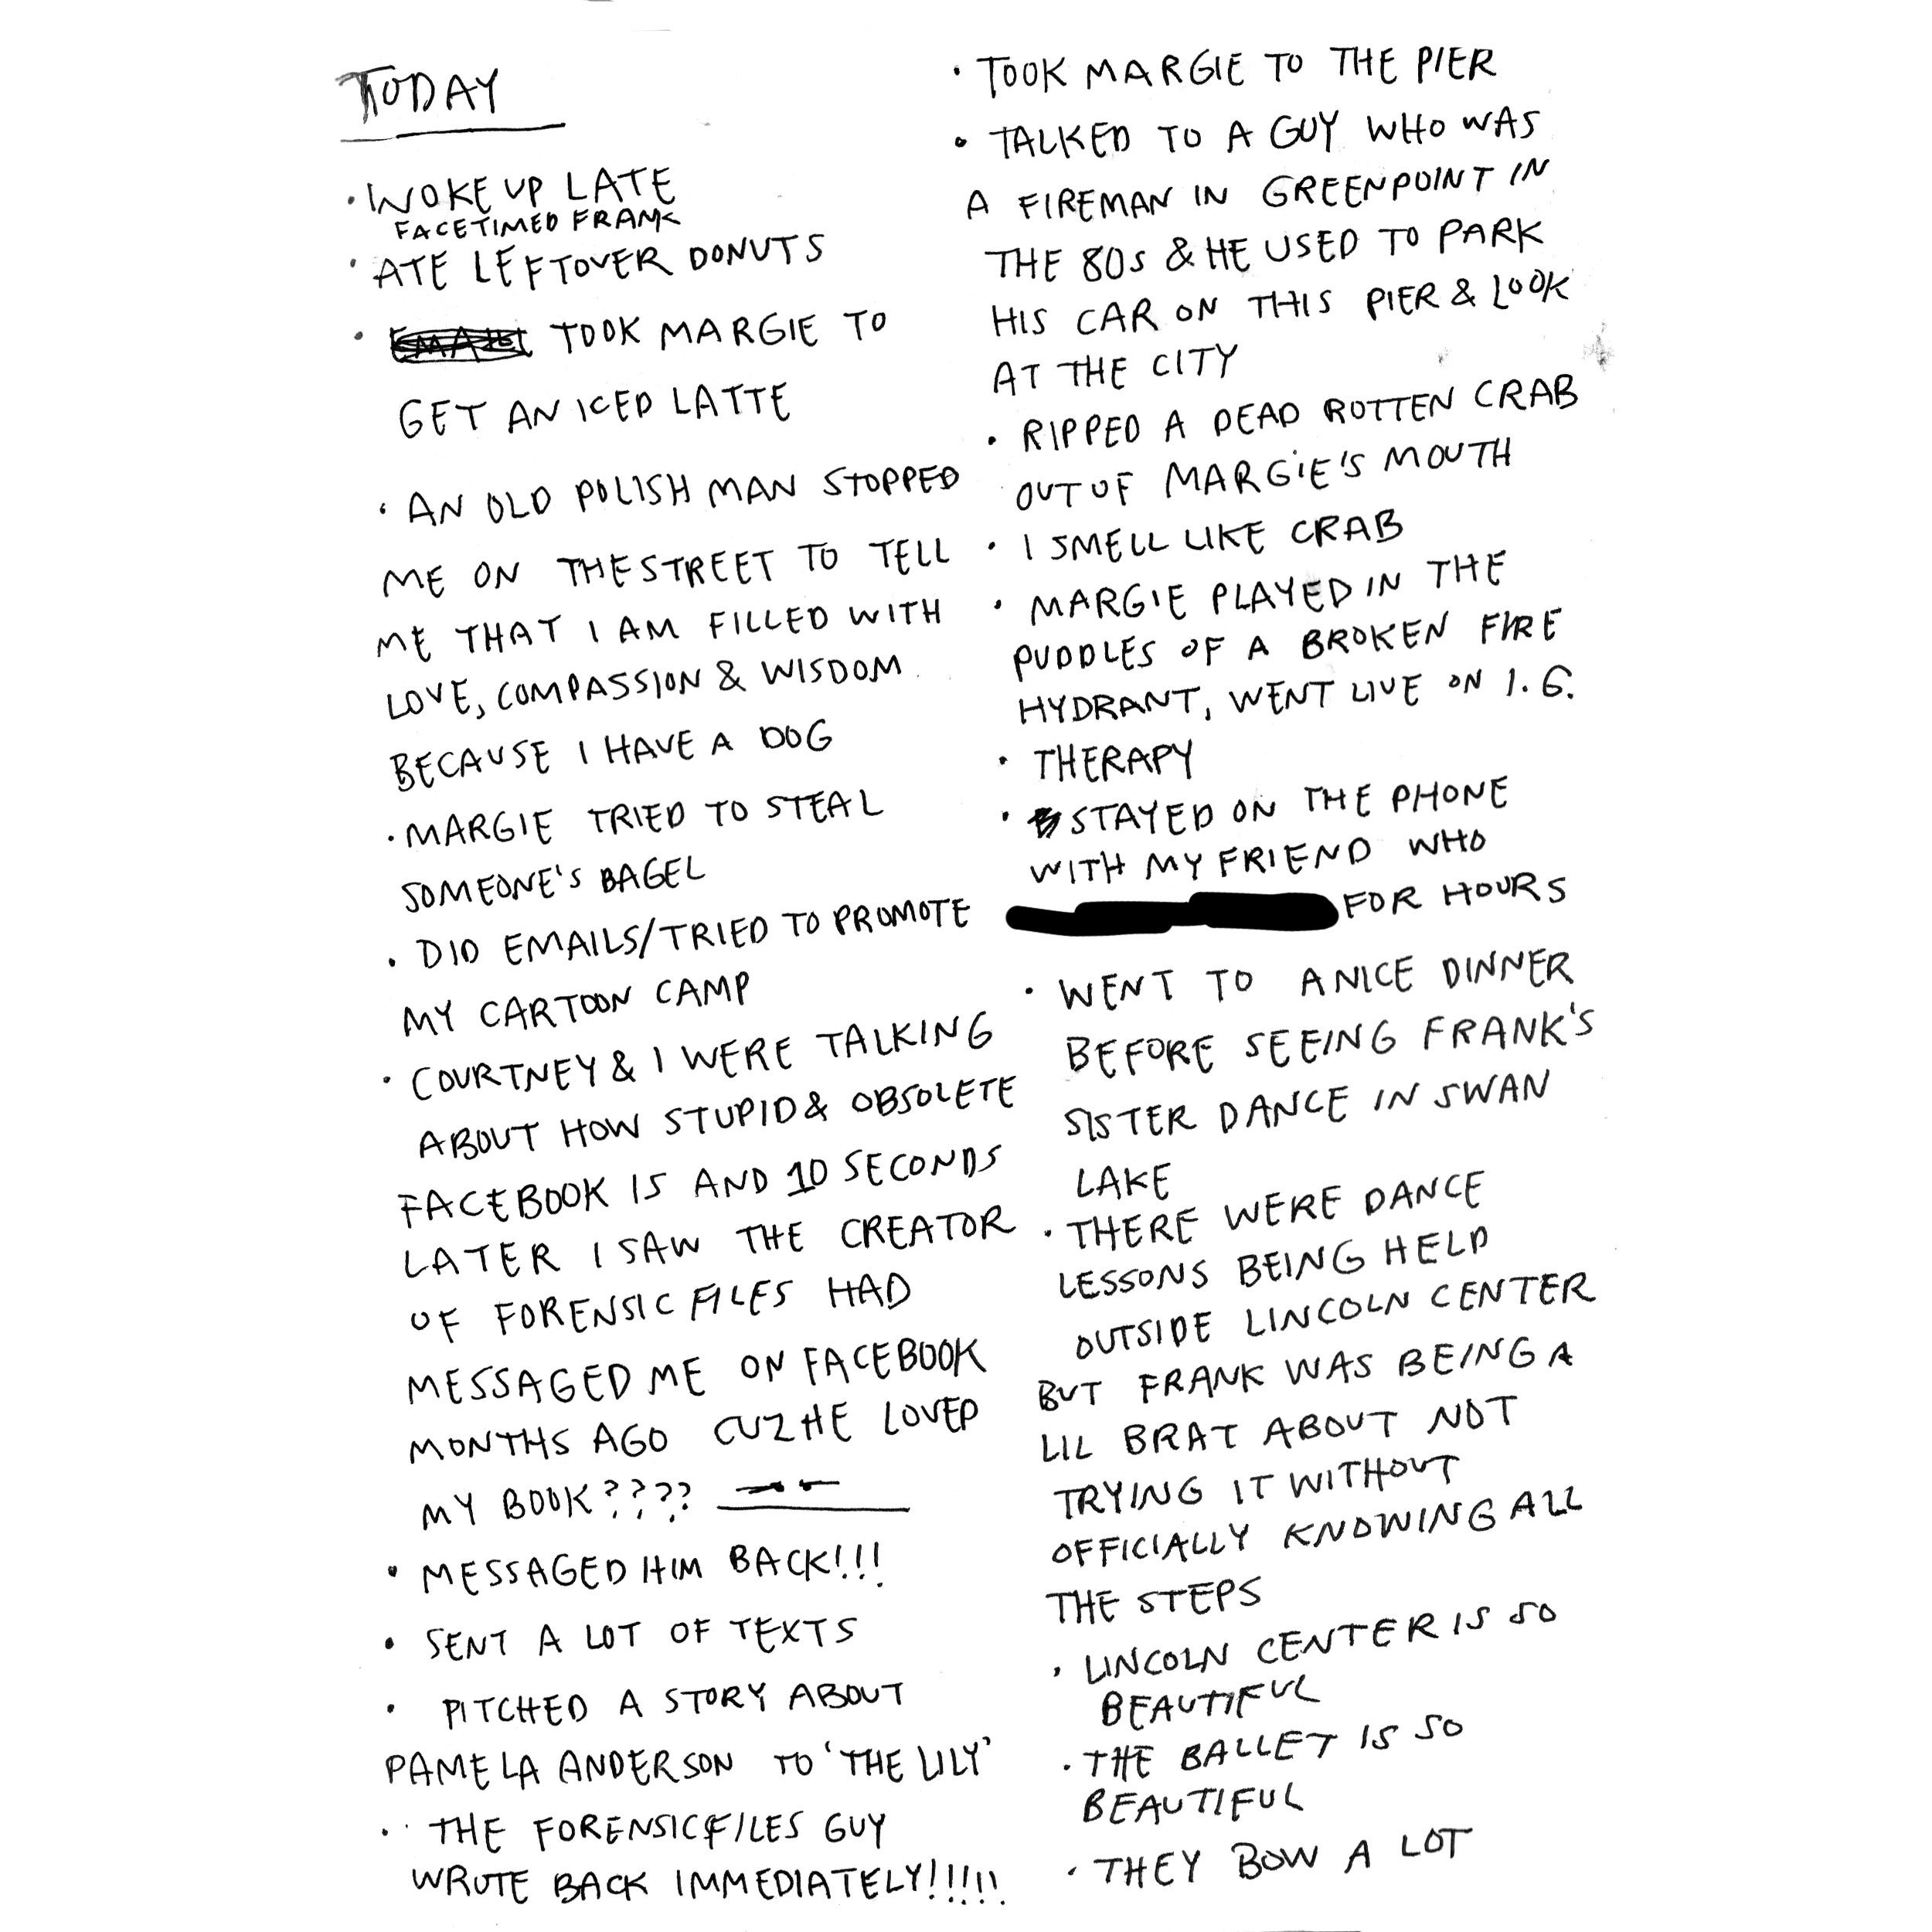 TODAY
· WOKE UP LATE
FACETIMED FRANK
· ATE LEFTOVER DONUTS
· TOOK MARGIE TO
GET AN ICED LATTE
· AN OLD POLISH MAN STOPPED
ME ON THE STREET TO TELL
ME THAT I AM FILLED WITH
LOVE, COMPASSION & WISDOM
BECAUSE I HAVE A DOG
· MARGIE TRIED TO STEAL
SOMEONE'S BAGEL
· DID EMAILS/TRIED TO PROMOTE
MY CARTOON CAMP
· COURTNEY & I WERE TALKING
ABOUT HOW STUPID & OBSOLETE
FACEBOOK IS AND 10 SECONDS
LATER I SAW THE CREATOR
OF FORENSIC FILES HAD
MESSAGED ME ON FACEBOOK
MONTHS AGO CUZ HE LOVED
MY BOOK????
· MESSAGED HIM BACK!!!
· SENT A LOT OF TEXTS
· PITCHED A STORY ABOUT
PAMELA ANDERSON TO 'THE LILY'
· THE FORENSIC FILES GUY
WROTE BACK IMMEDIATELY!!!!!
· TOOK MARGIE TO THE PIER
· TALKED TO A GUY WHO WAS
A FIREMAN IN GREENPOINT IN
THE 80s & HE USED TO PARK
HIS CAR ON THIS PIER & LOOK
AT THE CITY
· RIPPED A DEAD ROTTEN CRAB
OUT OF MARGIE'S MOUTH
· I SMELL LIKE CRAB
· MARGIE PLAYED IN THE
PUDDLES OF A BROKEN FIRE
HYDRANT, WENT LIVE ON I.G.
· THERAPY
· STAYED ON THE PHONE
WITH MY FRIEND WHO
FOR HOURS
· WENT TO A NICE DINNER
BEFORE SEEING FRANK'S
SISTER DANCE IN SWAN
LAKE
· THERE WERE DANCE
LESSONS BEING HELD
OUTSIDE LINCOLN CENTER
BUT FRANK WAS BEING A
LIL BRAT ABOUT NOT
TRYING IT WITHOUT
OFFICIALLY KNOWING ALL
THE STEPS
· LINCOLN CENTER IS SO
BEAUTIFUL
· THE BALLET IS SO
BEAUTIFUL
· THEY BOW A LOT